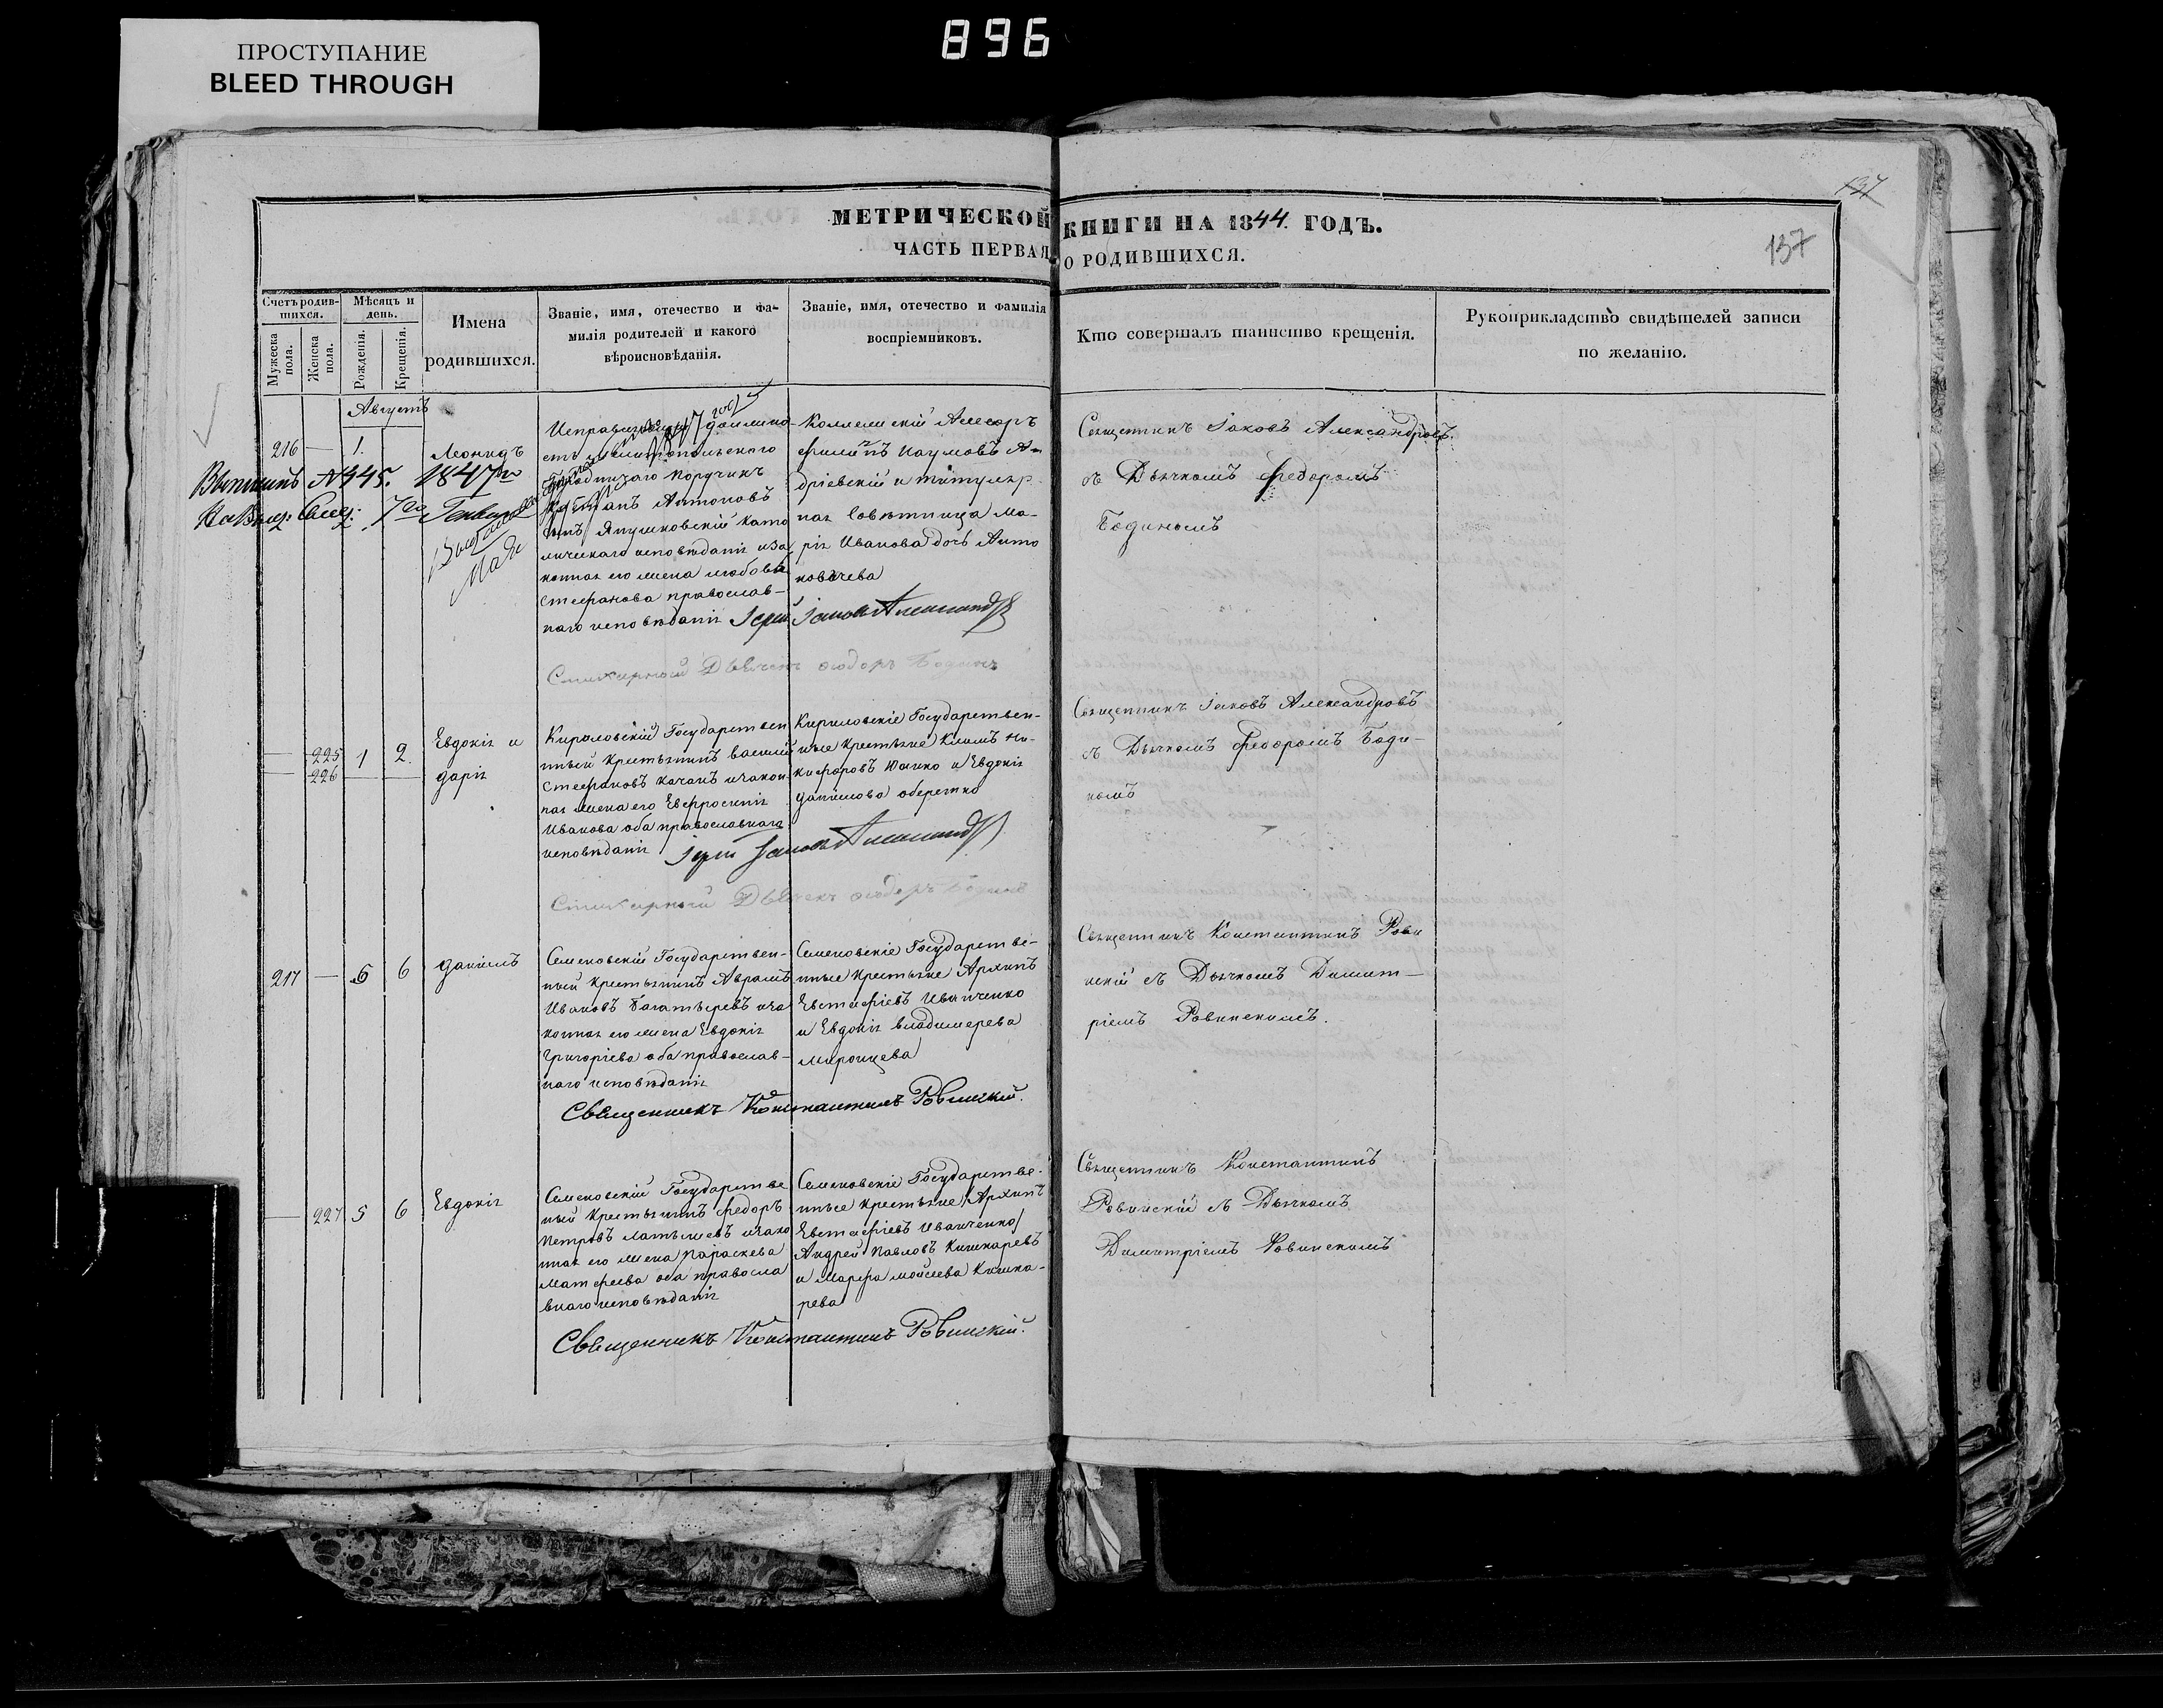 ПРОСТУПАНИЕ
BLEED THROUGH
896
МЕТРИЧЕСКОЙ КНИГИ НА 1844. ГОДЪ.
ЧАСТЬ ПЕРВАЯ О РОДИВШИХСЯ.
137
137
Счетъ родив-
шихся.
Мужеска
пола.
Женска
пола.
Мѣсяцъ и
день.
Рожденія.
Крещенія.
Имена
родившихся.
Званіе, имя, отечество и фа-
милія родителей и какого
вѣроисповѣданія.
Званіе, имя, отечество и фамилія
воспріемниковъ.
Кто совершалъ таинство крещенія.
Рукоприкладство свидѣтелей записи
по желанію.
Августъ
216 — 1.
Леонидъ
1847го
Исправляющій должно-
сть Мелитопольскаго
Поручикъ
Антоновъ
Янушковскій като
лическаго исповѣданія и за
конная его жена любовь
Стефанова православ-
наго исповѣданія
Іерей Іаковъ Александровъ
Коллежскій Асесоръ
Филипъ Наумовъ Ан-
дріевскій и титуляр
ная Совѣтница Ма-
рія Иванова дочь Анто
новичева
Священникъ Іаковъ Александровъ.
съ Дьячкомъ Федоромъ
Бодинымъ
Стихарный Дьячекъ Ѳедоръ Бодинъ
— 225 1 2.
— 226
Евдокія и
дарія
Кириловскій Государствен
нный крестьянинъ василій
Стефановъ качанъ и закон-
ная жена его Евфросинія
Иванова оба православнаго
исповѣданія
Іерей Іаковъ Александровъ
Кириловскіе Государствен-
ные крестьяне Климъ Ни-
кифоровъ Юшко и Евдокія
данилова оберемко
Священникъ Іаковъ Александровъ
съ Дьячкомъ Федоромъ Боди-
нымъ
Стихарный Дьячекъ Ѳедоръ Бодинъ
217 — 6 6
даніилъ
Семеновскій Государствен-
ный крестьянинъ Аврамъ
Ивановъ Багатыревъ и за
конная его жена Евдокія
Григоріева оба православ-
наго исповѣданія
Семеновскіе Государстве-
нные крестьяне Архипъ
Евстафіевъ Иванченко
и Евдокія владимерева
миронцева
Священникъ Константинъ Рови
нскій съ Дьячкомъ Димит-
ріемъ Ровинскимъ.
Священникъ Константинъ Ровинскій.
— 227 5 6
Евдокія
Семеновскій Государстве
нный крестьянинъ федоръ
Петровъ латышевъ и зако
нная его жена Параскева
Матфеева оба правосла
внаго исповѣданія
Семеновскіе Государстве-
нные крестьяне /Архипъ
Евстафіевъ Иванченко/
Андрей Павловъ Кишкаревъ
и Марфа моисеева Кишка-
рева
Священникъ Константинъ
Ровинскій съ Дьячкомъ
Димитріемъ Ровинскимъ
Священникъ Константинъ Ровинскій.